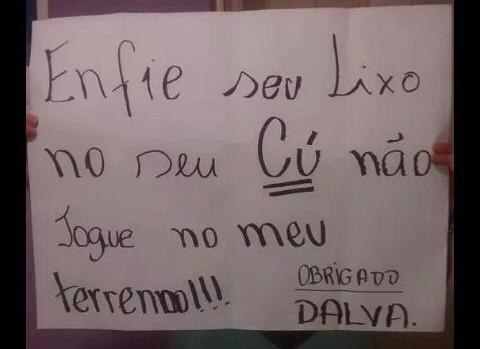 Enfie seu Lixo
no seu Cú não
Jogue no meu
terrenno!!!
OBRIGADO
DALVA.